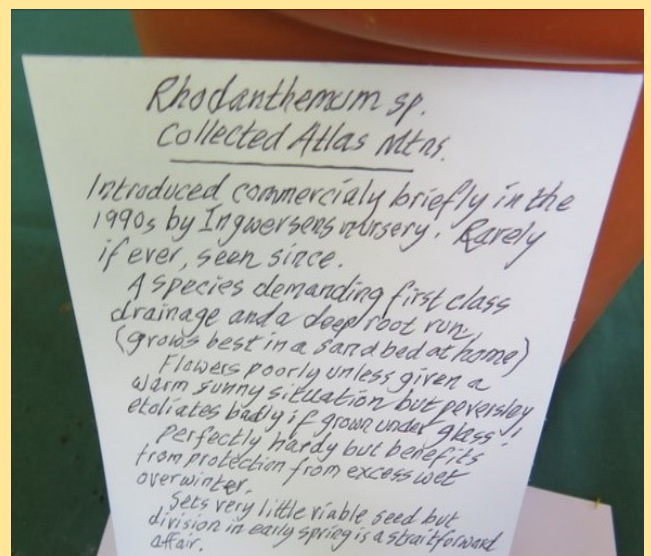 Rhodanthemum sp.
Collected Atlas Mtns.
Introduced commercialy briefly in the
1990s by Ingwersens nursery. Rarely
if ever, seen since.
A species demanding first class
drainage and a deep root run,
(grows best in a sand bed at home)
Flowers poorly unless given a
warm sunny situation but peversley
etoliates badly if grown under glass!
Perfectly hardy but benefits
from protection from excess wet
overwinter.
Sets very little viable seed but
division in early spring is a straitforward
affair.